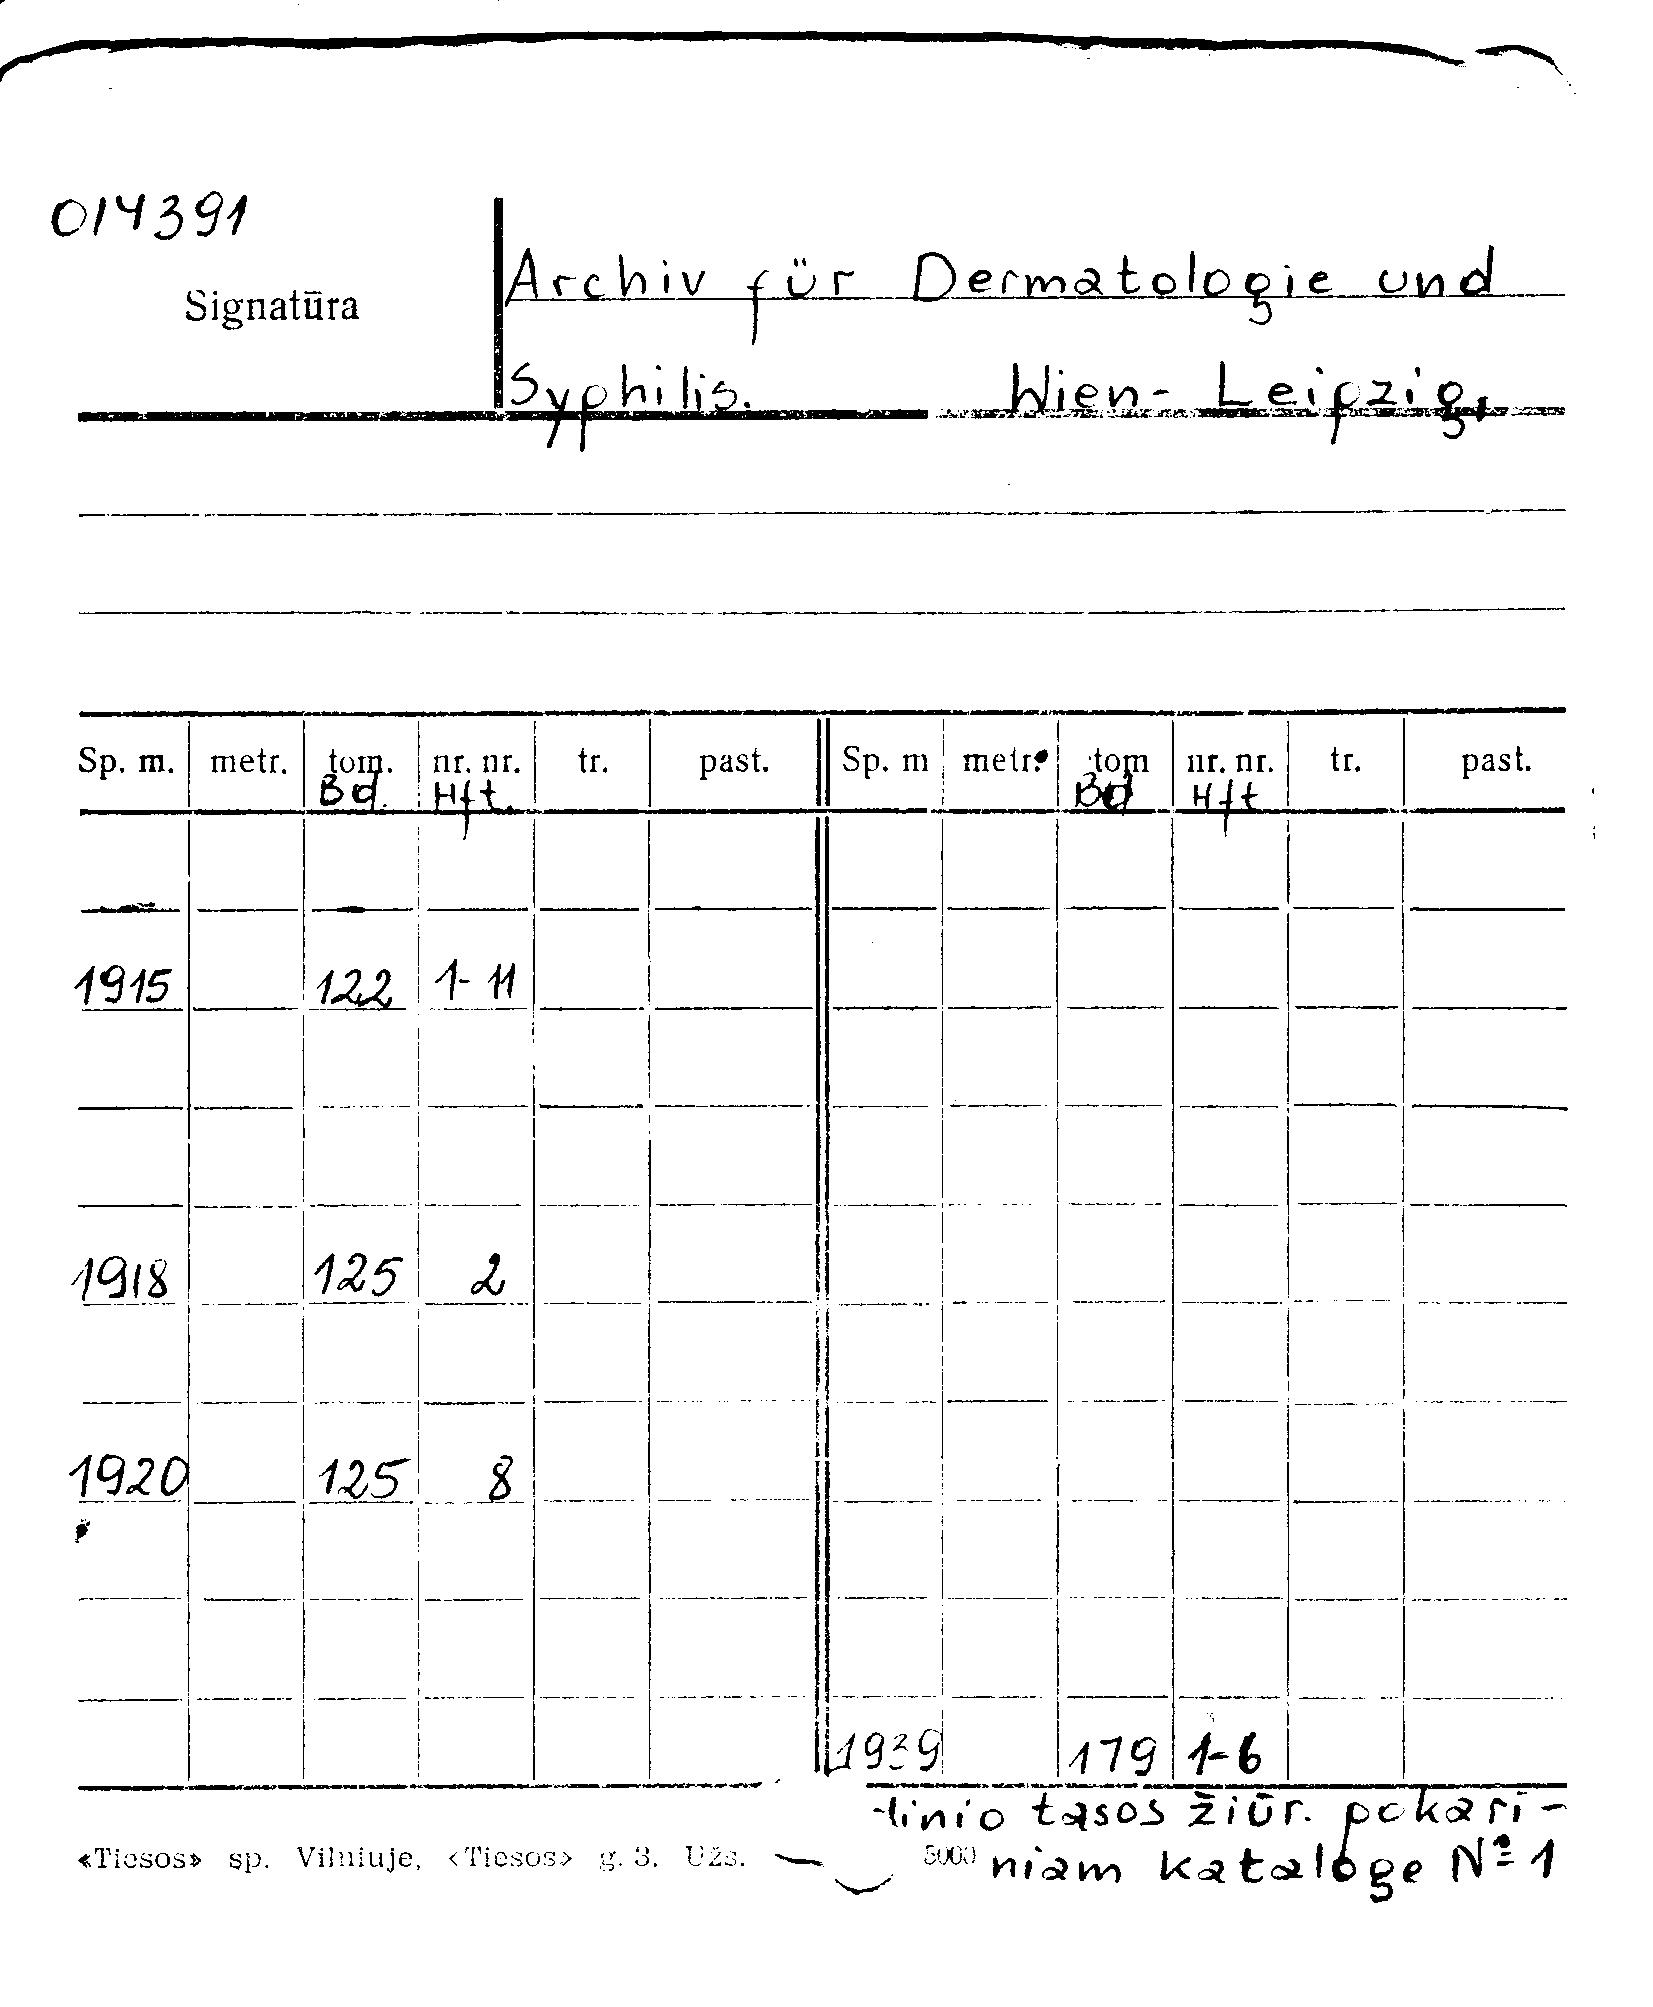 014391
Signatūra
Archiv für Dermatologie und
Syphilis. Wien- Leipzig,
Sp. m. metr. tom. nr. nr. tr. past. Sp. m metr. tom nr. nr. tr. past.
Bd. Hft. Bd Hft
1915 122 1-11
1918 125 2
1920 125 8
1939 179 1-6
tasos žiūr. pokari-
niam kataloge № 1
«Tiesos» sp. Vilniuje, «Tiesos» g. 3. Užs. 5000